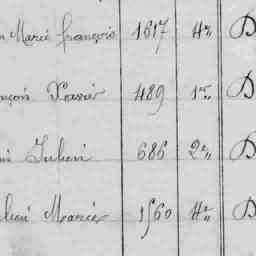 n Marie françois 1617 4e D
nçois Xavier 489 1re D
ni Julien 686 2e D
lien Marie 1560 4e D